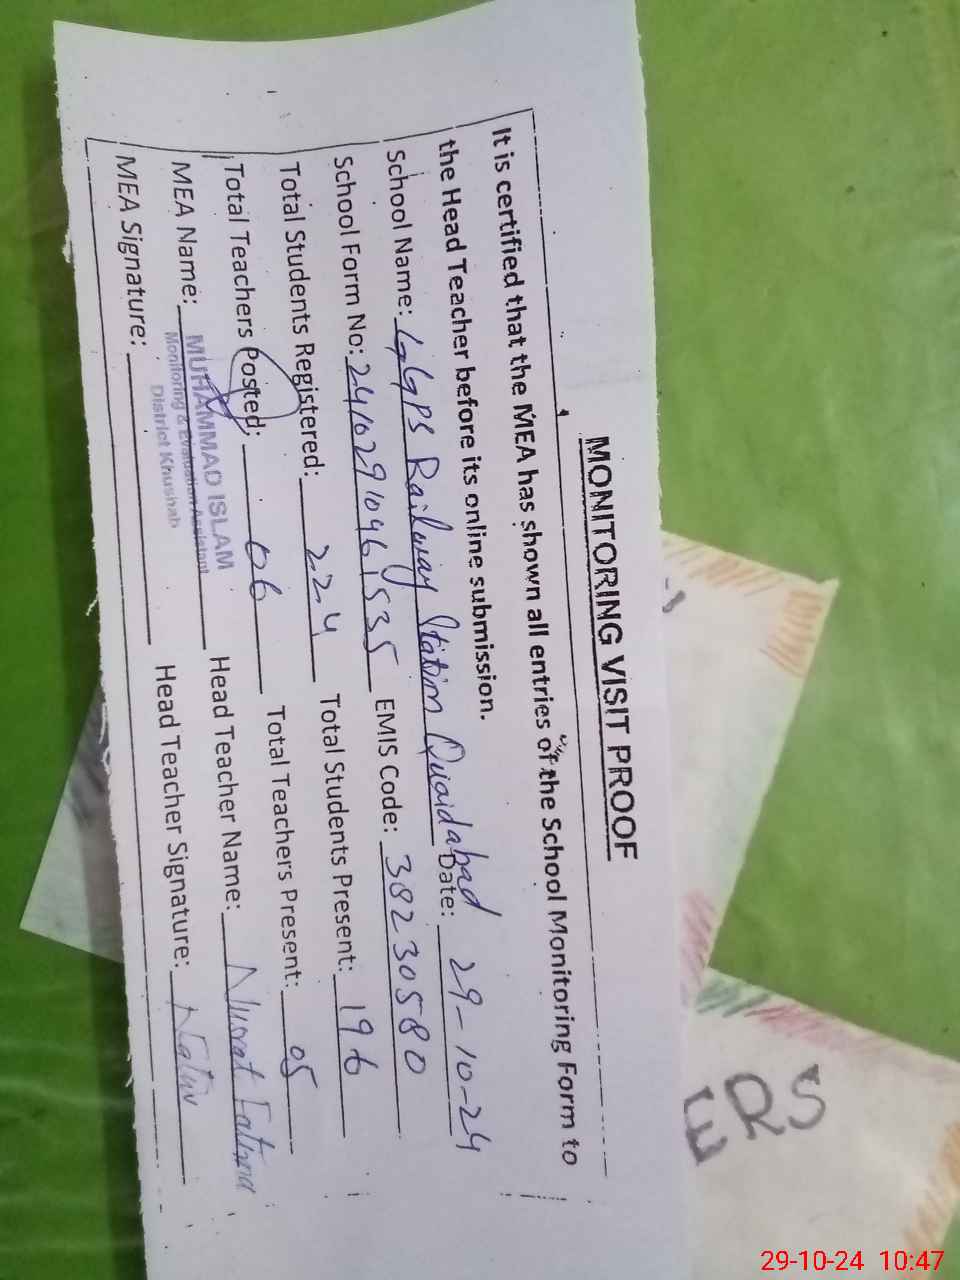 MONITORING VISIT PROOF
It is certified that the MEA has shown all entries of the School Monitoring Form to
the Head Teacher before its online submission.
School Name: GGPS Railway Station Quaidabad Date: 29-10-24
School Form No: 24102910461535 EMIS Code: 38230580
Total Students Registered: 224 Total Students Present: 196
Total Teachers Posted: 06 Total Teachers Present: 05
MEA Name: MUHAMMAD ISLAM Head Teacher Name: Nusrat Fatima
Monitoring & Evaluation Assistant
District Khushab
MEA Signature: Head Teacher Signature:
ERS
29-10-24 10:47